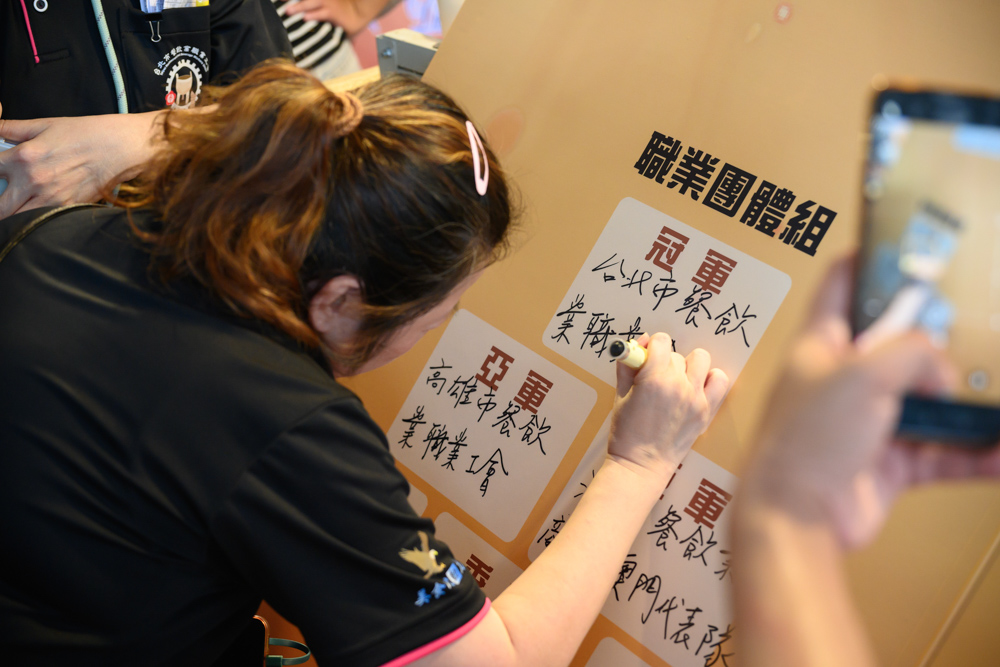 職業團體組
冠軍
台北市餐飲
業職業
亞軍
高雄市餐飲
業職業工會
軍
餐飲
澳門代表隊